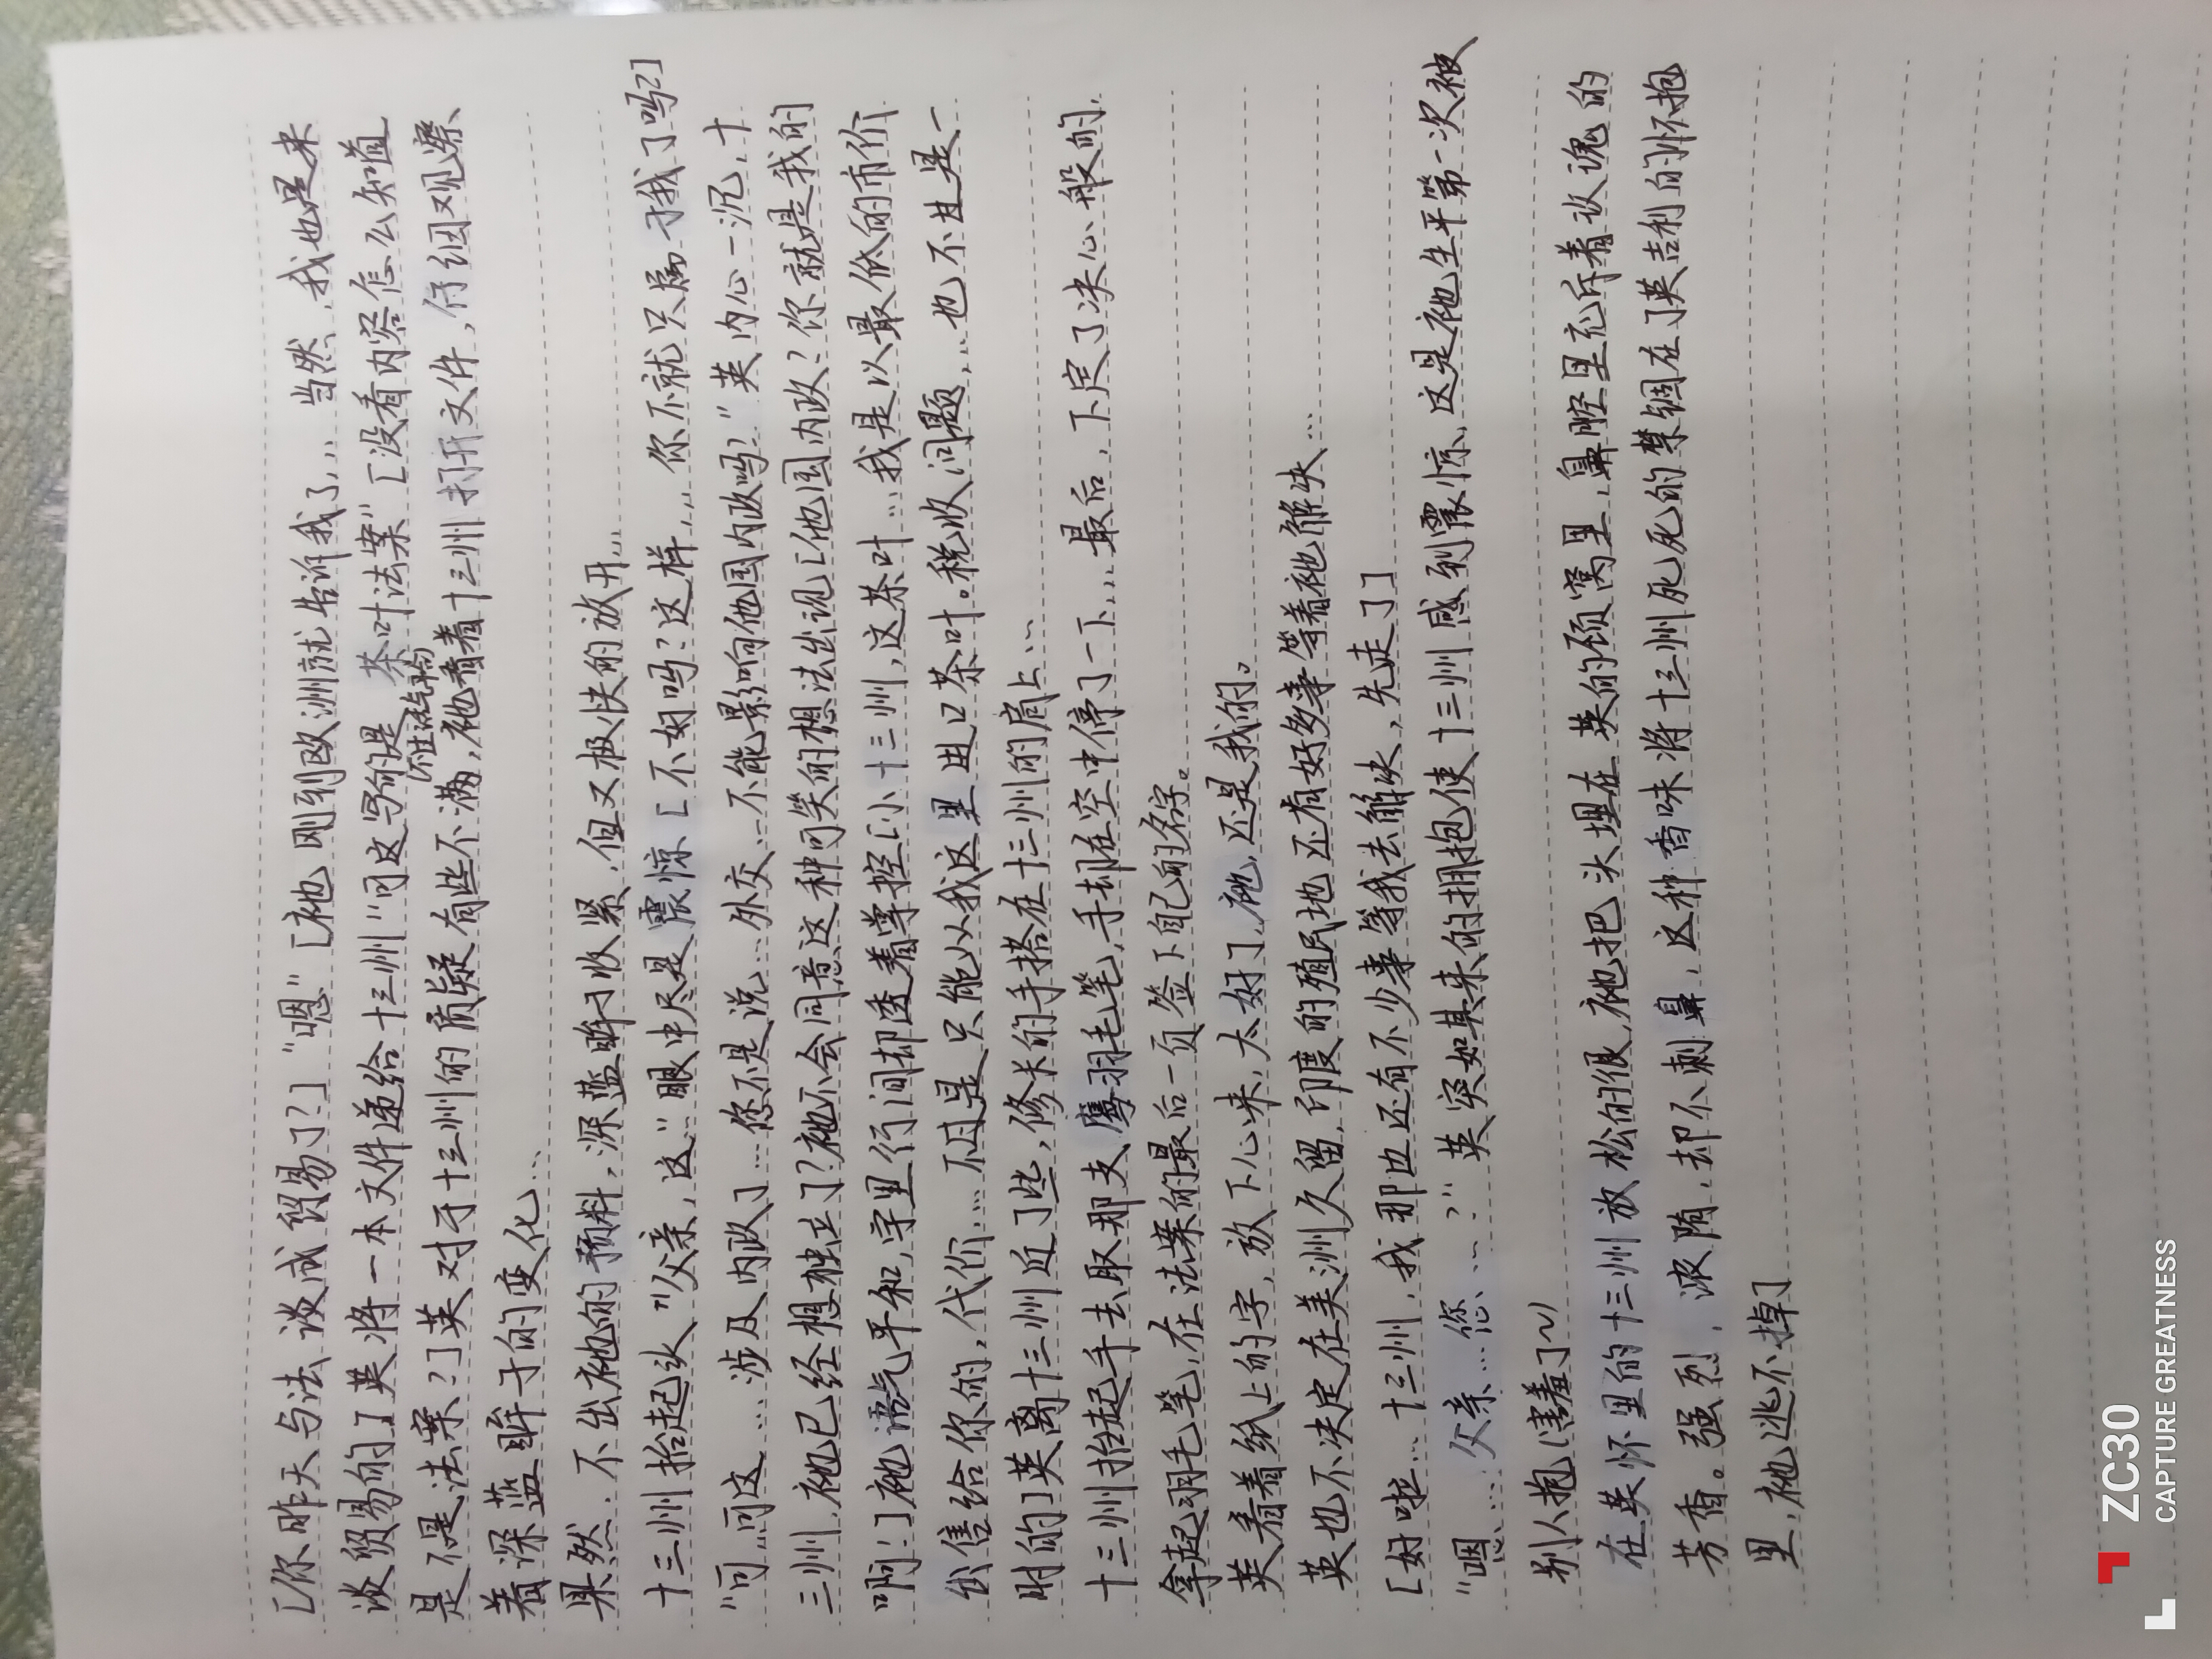 [你昨天与法谈成贸易了?] "嗯" [祂刚到欧洲就告诉我了,,, 当然, 我也是来
谈贸易的] 英将一本文件递给十三州 "可这写的是 茶叶法案" [没看内容怎么知道
是不是法案?] 英对于十三州的质疑有些不满, 祂看着十三州打开文件, 仔细观察
着深蓝眸子的变化...
果然. 不出祂的预料, 深蓝眸子收紧, 但又极快的放开,,,
十三州抬起头 "父亲, 这" 眼中尽是震惊 [不好吗? 这样,,, 你不就只属于我了吗?]
"可,,可这... 涉及内政了... 您不是说... 外交...不能影响他国内政吗?" 英内心一沉, 十
三州, 祂已经想独立了? 祂不会同意这种可笑的想法出现 [他国内政? 你就是我的
啊!] 祂语气平和, 字里行间却透着掌控 [小十三州, 这茶叶... 我是以最低的市价
出售给你的, 代价,... 不过是只能从我这里进口茶叶。税收问题,,, 也不过是一
时的] 英离十三州近了些, 修长的手搭在十三州的肩上...
十三州抬起手去取那支鹰羽毛笔, 手却在空中停了一下,,, 最后, 下定了决心般的,
拿起羽毛笔, 在法案的最后一页签下自己的名字。
英看着纸上的字, 放下心来, 太好了, 祂, 还是我的。
英也不决定在美洲久留, 印度的殖民地还有好多事等着祂解决...
[好啦... 十三州, 我那边还有不少事等我去解决, 先走了]
"嗯... 父亲... 您...?" 英突如其来的拥抱使十三州感到震惊, 这是祂生平第一次被
别人抱 (害羞了~)
在英怀里的十三州放松的很, 祂把头埋在英的颈窝里, 鼻腔里充斥着玫瑰的
芳香。强烈, 浓郁, 却不刺鼻, 这种香味将十三州死死的禁锢在了英吉利的怀抱
里, 祂逃不掉]
ZC30
CAPTURE GREATNESS